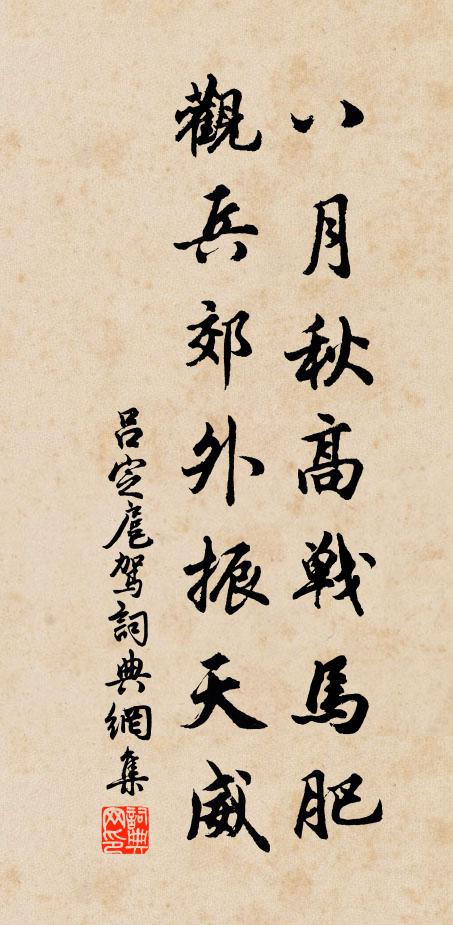 八月秋高戦馬肥
觀兵郊外振天威
吕定扈駕詞典網集
詞典网印